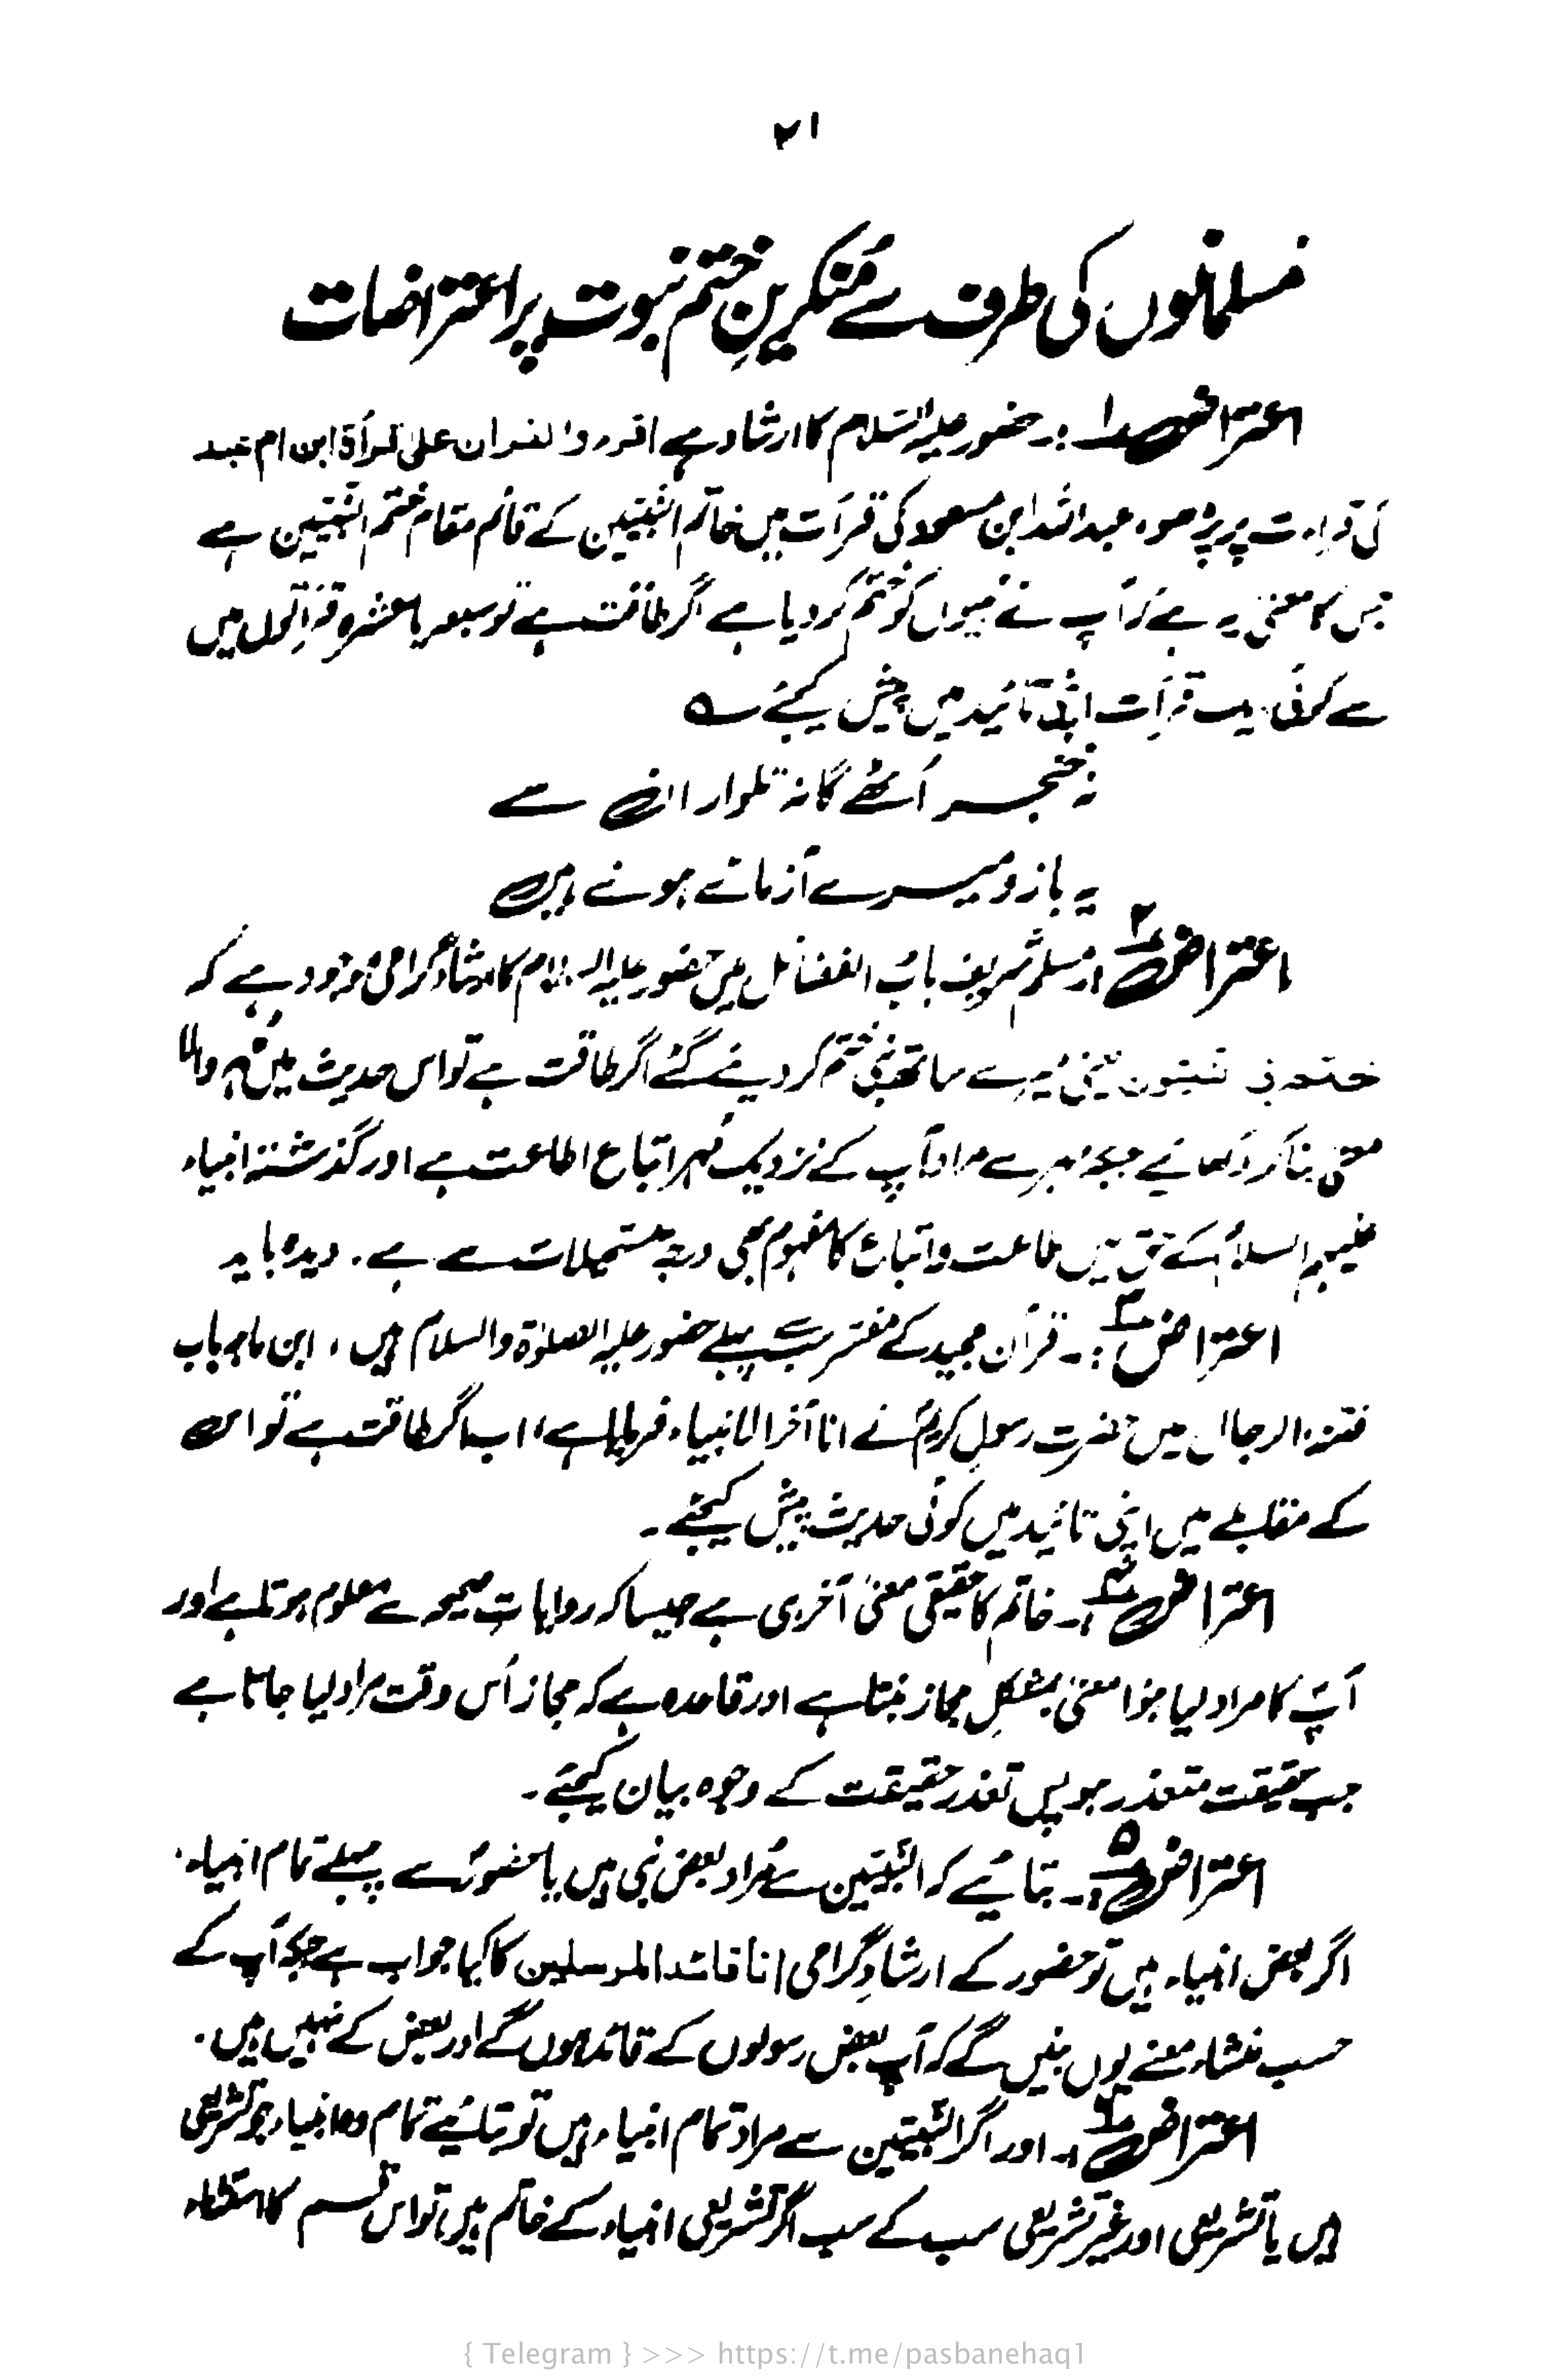 ۲۱
مسلمانوں کی طرف سے مُنکرینِ ختم نبوت پر اعتراضات
اعتراض ۱ :۔ حضور علیہ السلام کا ارشاد ہے اقرءوا القرآن علی قرأة ابن ام عبد
کی قراءت پر پڑھو۔ عبداللہ ابن مسعود کی قرأت میں خاتم النبیّین کے قائم مقام ختم النبیّین ہے
جس کا معنیٰ یہ ہے کہ آپ نے نبیوں کو ختم کر دیا ہے اگر طاقت ہے تو سبعہ یا عشرہ قرأتوں میں
سے کوئی قرأت اپنی تائید میں پیش کیجئے ؎
نہ خنجر اُٹھے گا نہ تلوار ان سے
یہ بازو میرے آزمائے ہوئے ہیں
اعتراض ۲ :۔ مسلم شریف باب الفضائل میں حضور علیہ السلام کا ارشاد گرامی موجود ہے کہ
ختم بی النبیون یعنی میرے ساتھ نبی ختم کر دیئے گئے اگر طاقت ہے تو اس حدیث میں مُہر والا
معنی بنا کر دکھائیے جبکہ مہر سے مراد آپ کے نزدیک مُہر اتباع اطاعت ہے اور گذشتہ انبیاء
علیہم السلام کے حق میں طاعت و اتباع کا مفہوم بھی درجہ مستحیلات سے ہے۔ دیدہ باید
اعتراض ۳ :۔ قرآن مجید کے مفسر سب سے پہلے حضور علیہ الصلوٰة والسلام ہیں، ابن ماجہ باب
فتنہ الدجال میں حضرت رسول کریمؐ نے انا آخر الانبیاء فرمایا ہے، اب اگر طاقت ہے تو اس
کے مقابلے میں اپنی تائید میں کوئی حدیث پیش کیجئے۔
اعتراض ۴ :۔ خاتم کا حقیقی معنیٰ آخری ہے جیسا کہ روایات صحیحہ سے معلوم ہوتا ہے اور
آپ کا مراد لیا ہوا معنیٰ بشکلِ مجاز بنتا ہے اور قاعدہ ہے کہ مجاز اُس وقت مراد لیا جاتا ہے
جب حقیقت متعذر ہو پس تعذر حقیقت کے وجوہ بیان کیجئے۔
اعتراض ۵ :۔ بتائیے کہ النبیّین سے مُراد بعض نبی ہیں یا حضورؐ سے پہلے تمام انبیاء،
اگر بعض انبیاء ہیں تو حضور کے ارشادِ گرامی انا قائد المرسلین کا کیا جواب ہے جبکہ آپ کے
حسب منشاء معنے یوں بنیں گے کہ آپ بعض رسولوں کے قائد ہوں گے اور بعض کے نہیں ہیں۔
اعتراض ۶ :۔ اور اگر النبیّین سے مراد تمام انبیاء ہیں تو بتائیے تمام وہ انبیاء جو تشریعی
ہیں یا تشریعی اور غیر تشریعی سب کے سب اگر تشریعی انبیاء کے خاتم ہیں تو اس قسم کا استثناء
{ Telegram } >>> https://t.me/pasbanehaq1